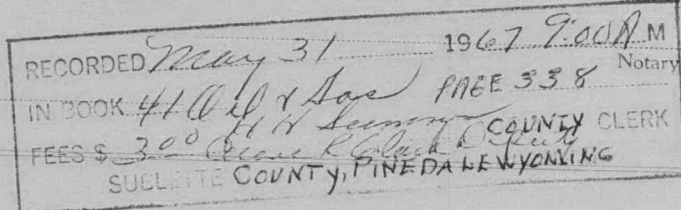 RECORDED May 31 1967 9:00 A M
Notary
IN BOOK 41 Oil & Gas PAGE 338
COUNTY CLERK
FEES $ 3.00 R Clark Deputy
SUBLETTE COUNTY, PINEDALE WYOMING